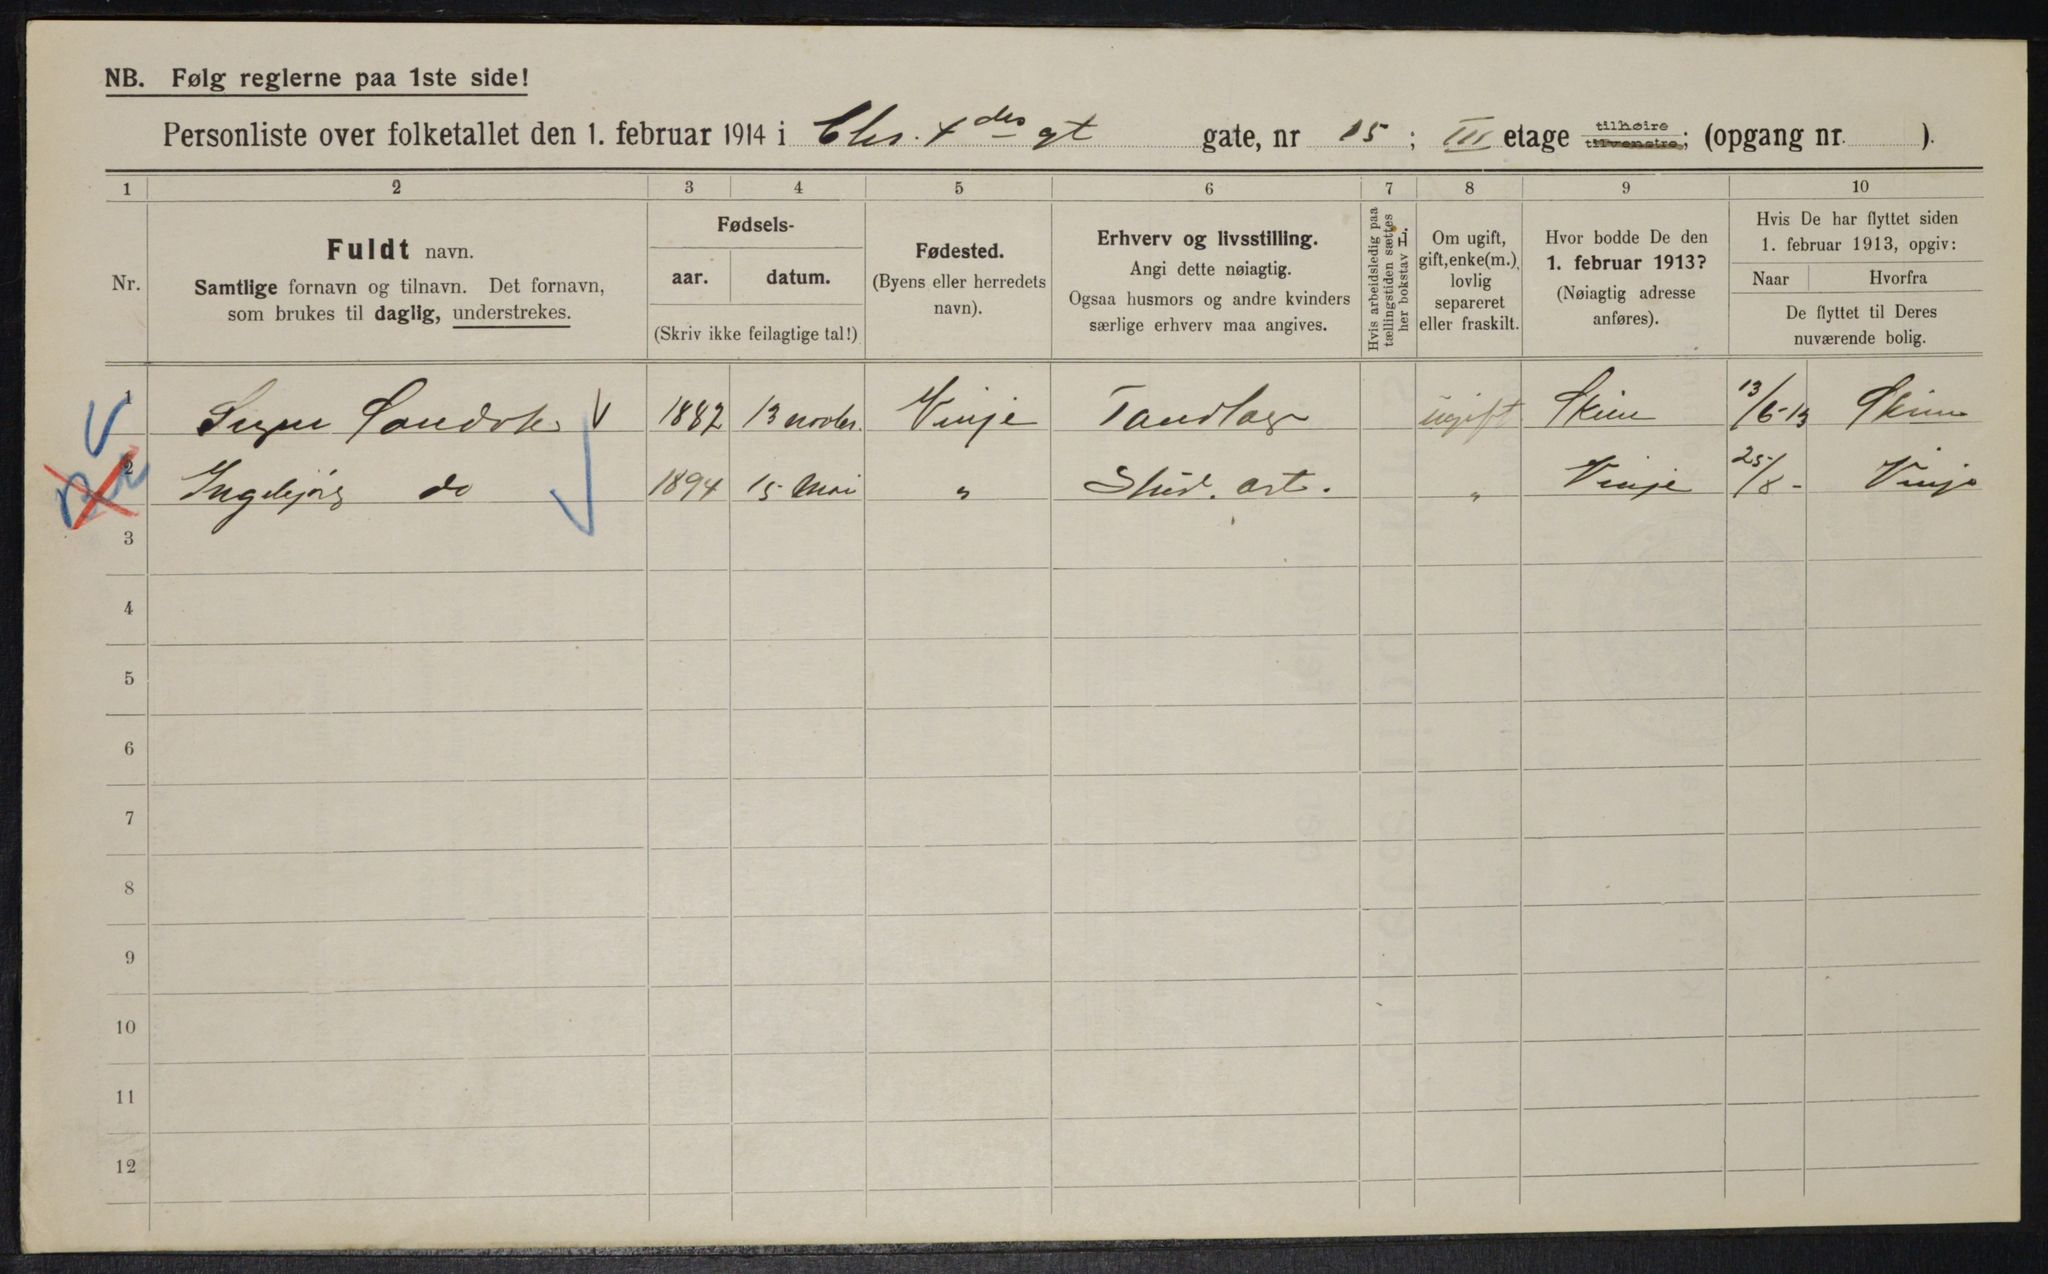 NB. Følg reglerne paa 1ste side!
Personliste over folketallet den 1. februar 1914 i Chr. 4des gt gate, nr 15; III etage tilhøire tilvenstre; (opgang nr. ).
1 2 3 4 5 6 7 8 9 10
Nr.
Fuldt navn.
Samtlige fornavn og tilnavn. Det fornavn,
som brukes til daglig, understrekes.
Fødsels-
aar. datum.
(Skriv ikke feilagtige tal!)
Fødested.
(Byens eller herredets
navn).
Erhverv og livsstilling.
Angi dette nøiagtig.
Ogsaa husmors og andre kvinders
særlige erhverv maa angives.
Hvis arbeidsledig paa
tællingstiden sættes
her bokstav L.
Om ugift,
gift, enke(m.),
lovlig
separeret
eller fraskilt.
Hvor bodde De den
1. februar 1913?
(Nøiagtig adresse
anføres).
Hvis De har flyttet siden
1. februar 1913, opgiv:
Naar Hvorfra
De flyttet til Deres
nuværende bolig.
1 1882 13 novbr. Vinje Tandlæge ugift Skien 13/6-13 Skien
2 Ingebjørg do 1894 15 Mai " Stud. art. " Vinje 25/8- Vinje
3
4
5
6
7
8
9
10
11
12